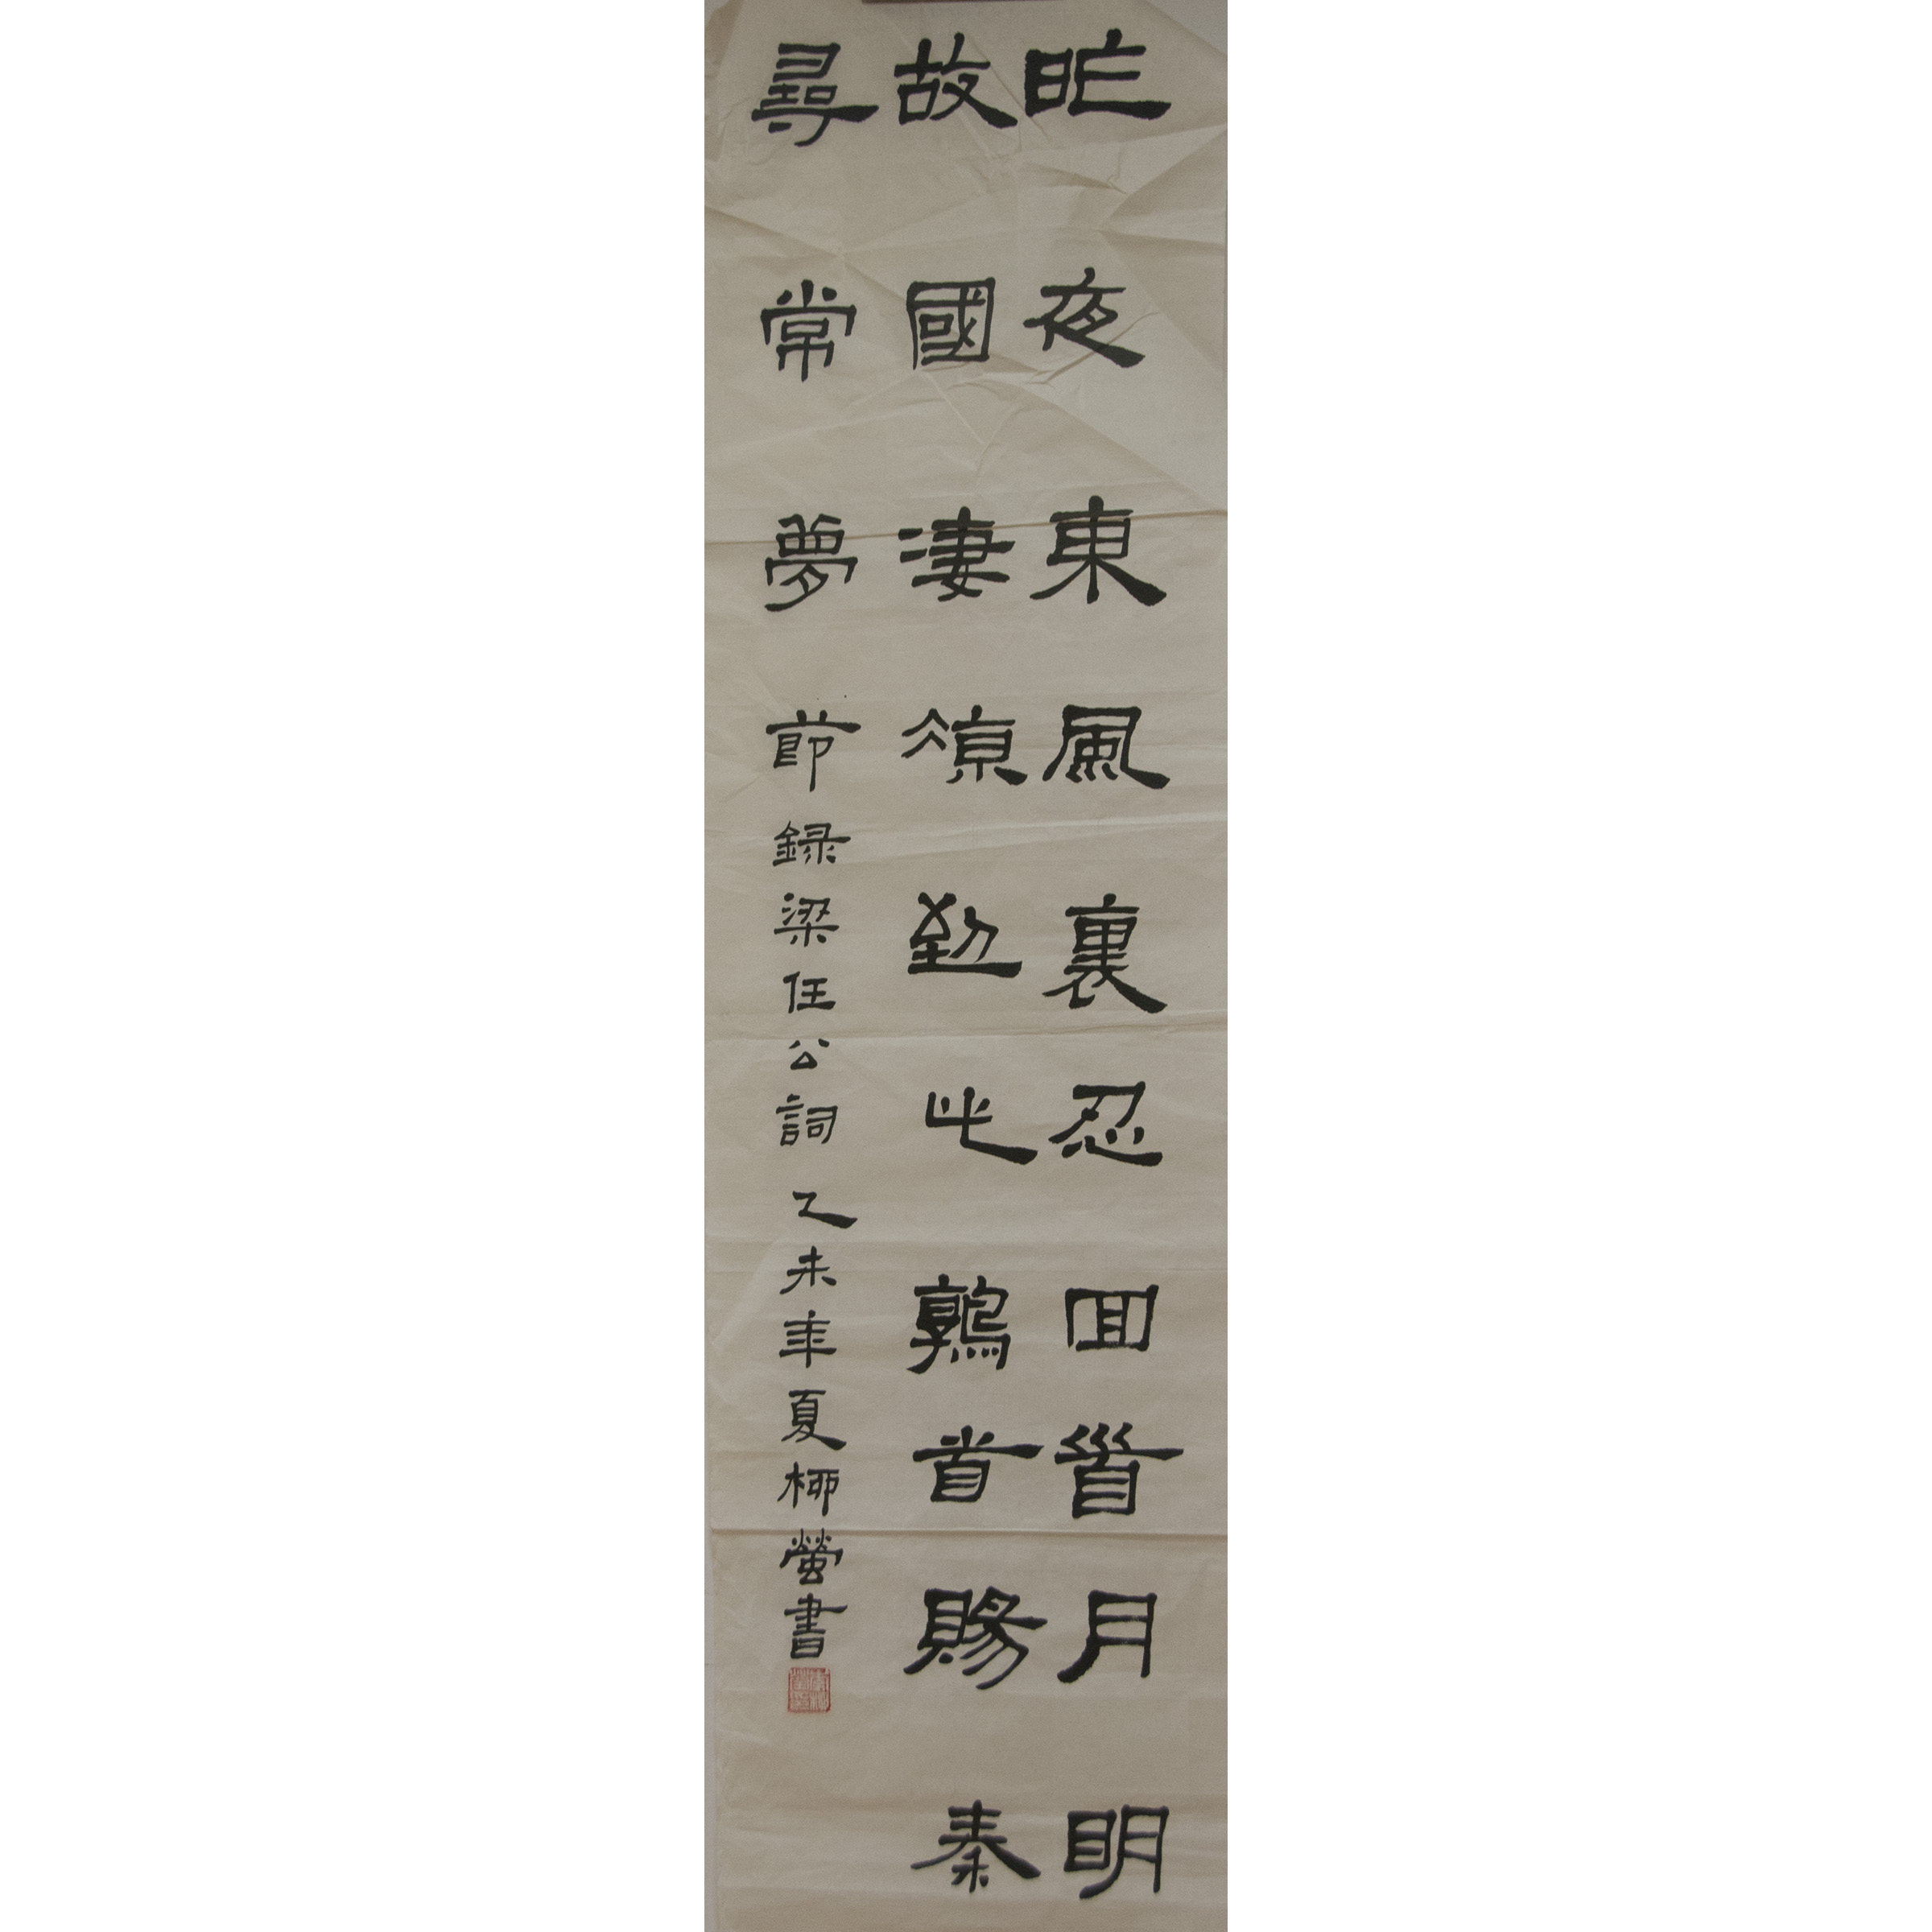 昨夜東風裏忍回首月明
故國淒涼到此鶉首賜秦
尋常夢 節錄梁任公詞 乙未年夏柳螢書